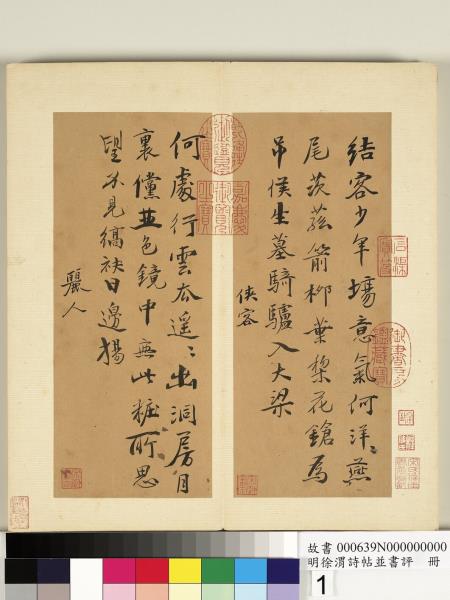 結客少年場意氣何洋〻燕
尾茨菰箭柳葉梨花鎗為
弔侯生墓騎驢入大梁
俠客
何處行雲衣遙〻出洞房月
裏儻並色鏡中無此粧所思
望不見縞袂日邊揚
麗人
故書 000639N000000000
明徐渭詩帖並書評 冊
1